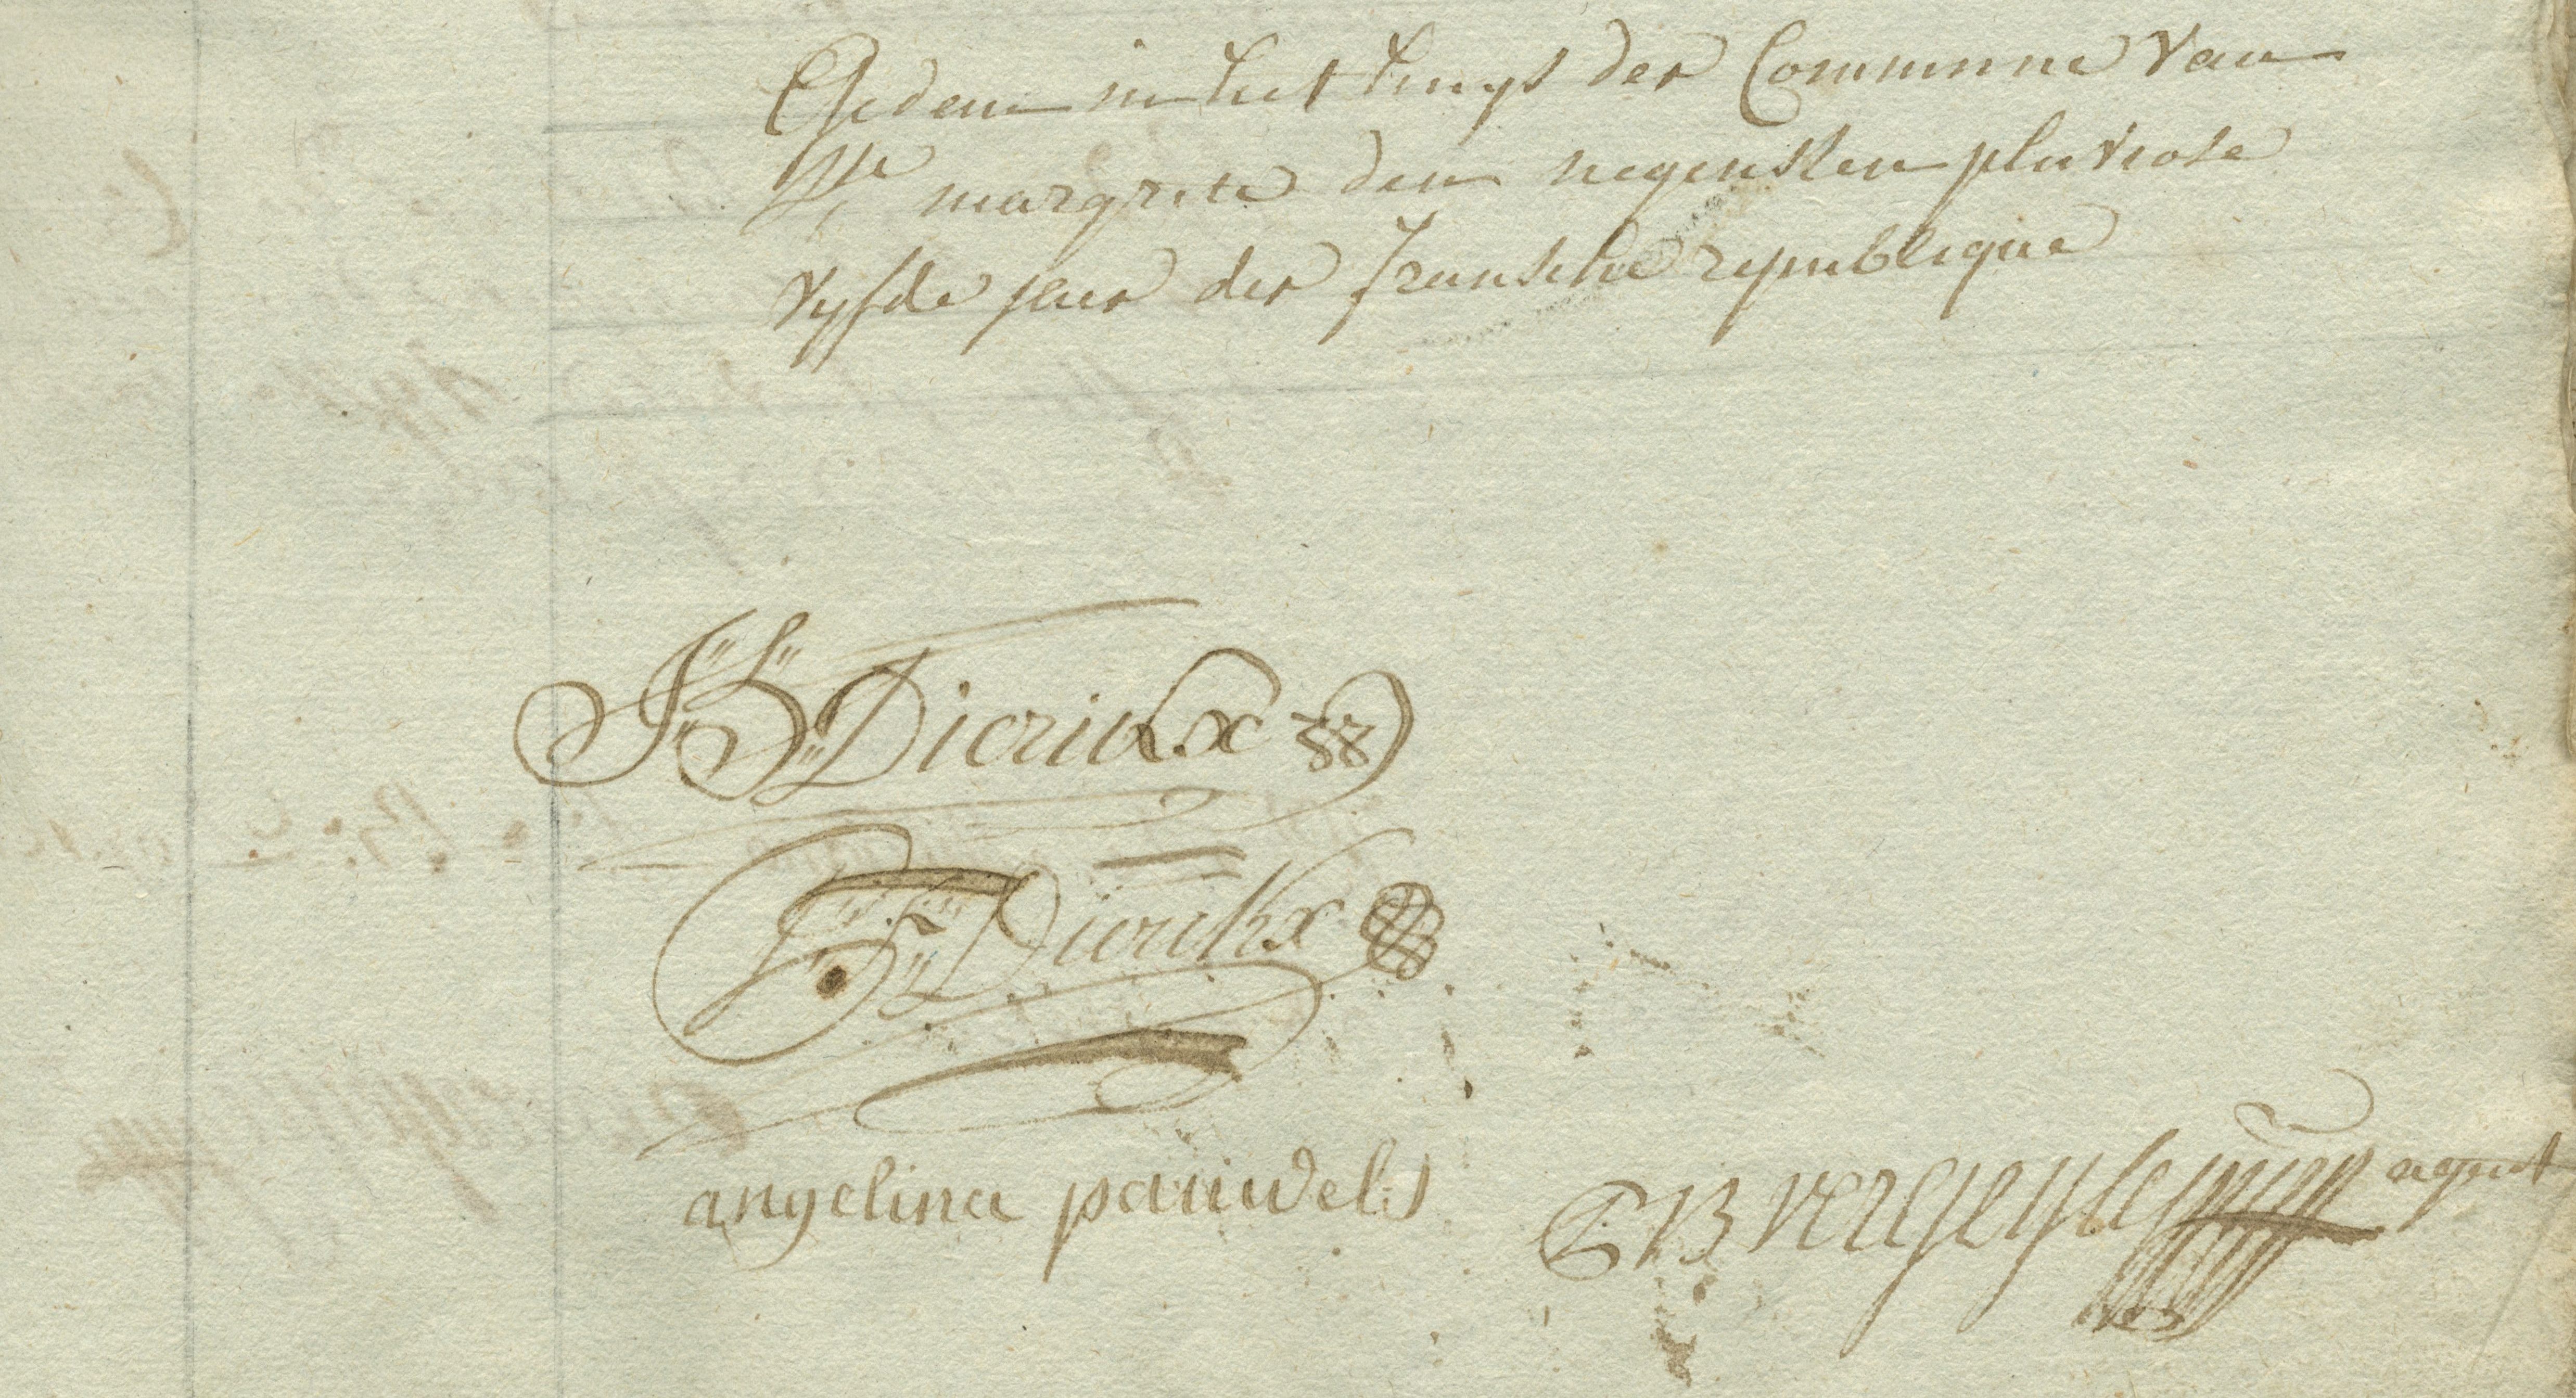 Gedaen in het huys der Commune van
Ste margrite den negensten pluviose
vyfde jaer der fransche republique
J B Dierickx
J F Dierickx
angelina pauwels
agent